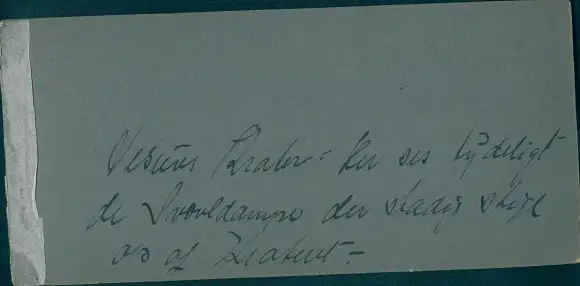 Vesuvs Krater = her ses tydeligt
de Svovldampe der stadig stige
op af Krateret =